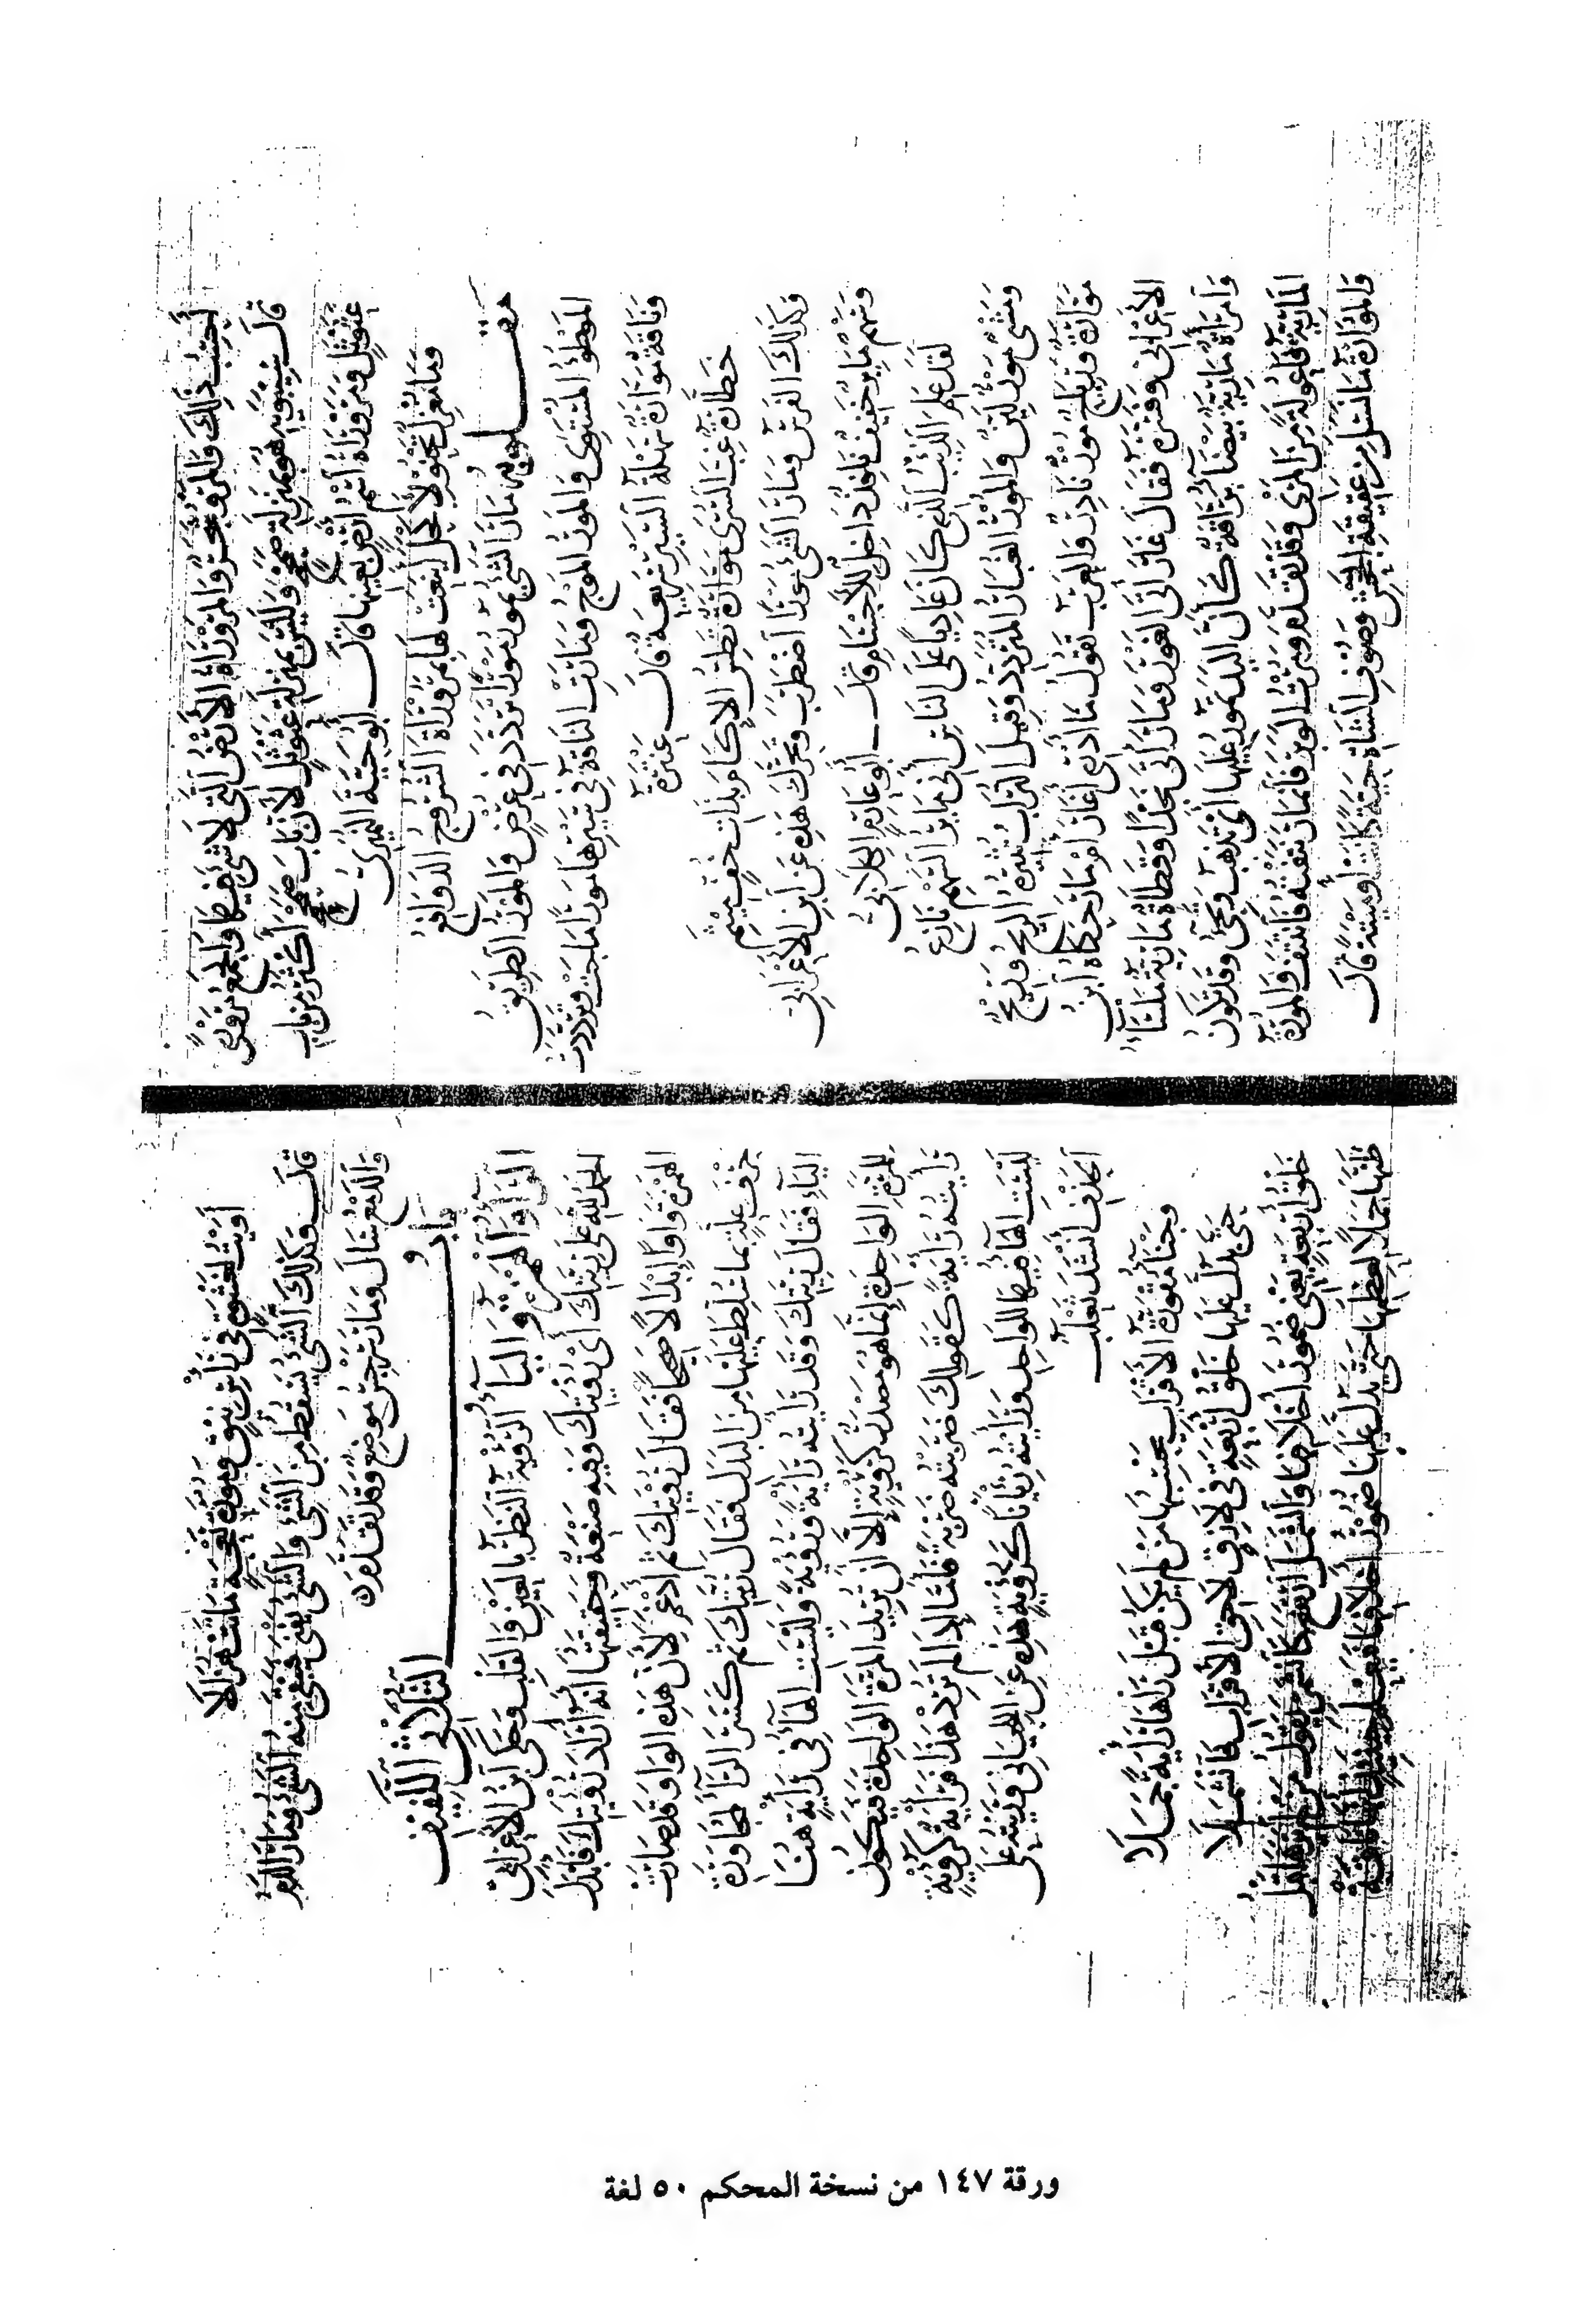 أحسب ذلك والمرو شجر والمروراة الأرض التي لا شيء فيها والجمع مرورى
قال سيبويه هو بمنزلة صمحمح وليس بمنزلة عثوثل لأن باب صمحمح أكثر من باب
عثوثل ومروراة اسم أرض بعينها قال أبو حية النميري
وما مغزل تحنو لأكحل أينعت لها بمروراة الشروج الدوافع
مقلوبه مار الشيء يمور مورا تردد في عرض والمور الطريق
الموطوء المستوي والمور الموج ومارت الناقة في سيرها مورا ماجت وترددت
وناقة موارة سهلة السير سريعة قال عنترة
خطارة غب السرى موارة تطس الإكام بذات خف ميثم
وكذلك الفرس ومار الشيء مورا اضطرب وتحرك هذه عن ابن الأعرابي
وسهم مائر خفيف نافذ داخل في الأجسام قال أبو عامر الكلابي
لقد علم الذئب الذي كان عاديا على الناس أني مائر السهم نازع
ومشي مور لين والمور الغبار المتردد وقيل التراب تثيره الريح وريح
موارة وأرياح مور نادر والعرب تقول ما أدري أغار أم مار حكاه ابن
الأعرابي وفسره فقال غار أتى الغور ومار أتى نجدا وقطاة مارية ملساء
وامرأة مارية بيضاء براقة كأن اليد تمور عليها أي تذهب وتجيء وقد تكون
المارية فاعولة من المري وقد تقدم ومرت الوبر فانمار نتفته فانتتف والموارة
والموارة ما نسل من عقيقة الجحش وصوف الشاة حية كانت أو ميتة قال
أويت لعشوة في رأس نيق ومورة نعجة ماتت هزالا
قال وكذلك الشيء يسقط من الشيء والشيء يفنى فيبقى منه الشيء ومار الدم
والدمع سال ومار سرجس موضع وقد تقدم
باب الثلاثي اللفيف
الراء والهمزة والياء الرؤية النظر بالعين والقلب وحكى ابن الأعرابي
الحمد لله على ريتك أي رؤيتك وفيه صنعة وحقيقتها أنه أراد رؤيتك فأبدل
الهمزة واوا إبدالا صحيحا فقال رويتك ثم أدغم لأن هذه الواو قد صارت
حرف علة بما سلط عليها من البدل فقال ريتك ثم كسر الراء لمجاورة
الياء فقال ريتك وقد رأيته رأية ورؤية وليست الهاء في رأية هنا
للمرة الواحدة إنما هو مصدر كرؤية إلا أن تريد المرة الواحدة فيكون
رأيته رأية كقولك ضربته ضربة فأما إذا لم ترد هذا فرأية كرؤية
ليست الهاء فيها للواحد ورأيته رئيانا كرؤية هذه عن اللحياني وريته على
الحذف أنشد ثعلب
وجناء مقورة الأقراب يحسبها من لم يكن قبل راها رأية جملا
حتى يدل عليها خلق أربعة في لازق لاحق الأقراب فانشملا
خلق أربعة يعني ضمور أخلافها وانشمل ارتفع كانشمر يقول من لم يرها قبل
ظنها جملا لعظمها حتى يدل عليها ضمور أخلافها فيعلم حينئذ أنها ناقة
ورقة ١٤٧ من نسخة المحكم ٥٠ لغة